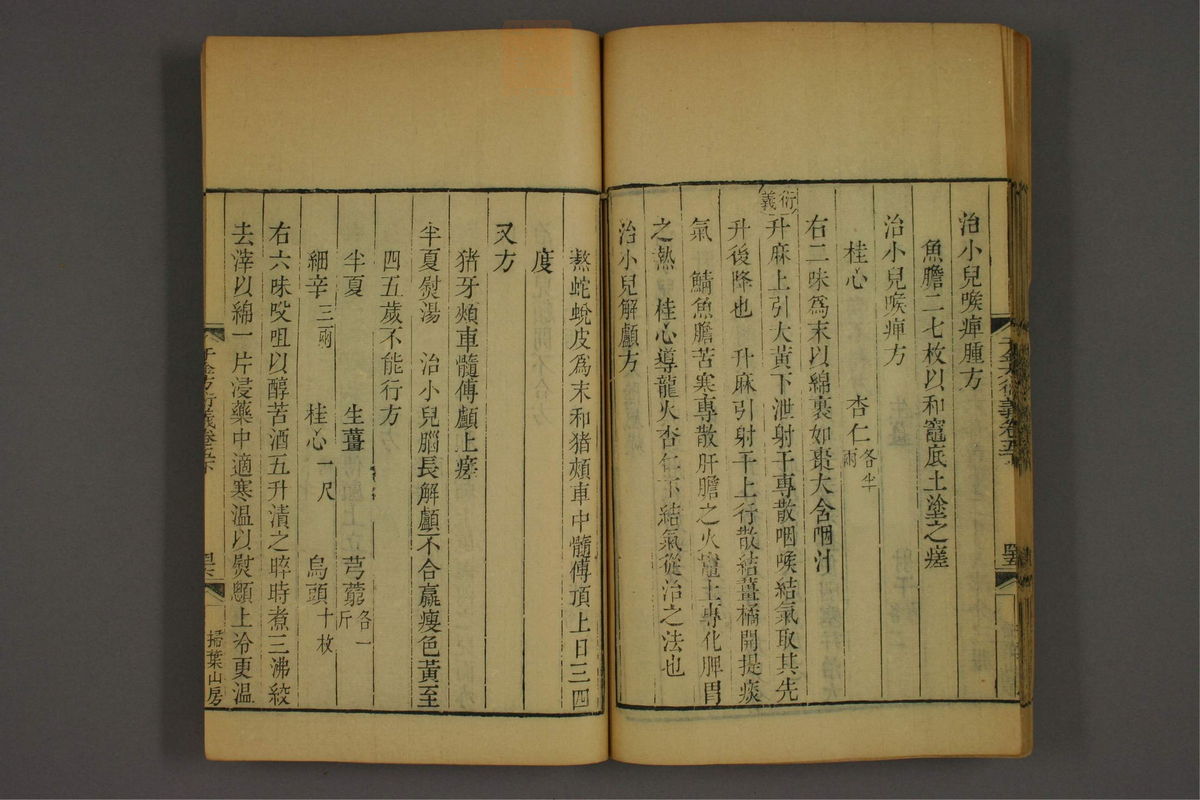 治小兒喉痺腫方
魚膽二七枚以和竈底土塗之瘥
治小兒喉痺方
桂心　杏仁各半兩
右二味爲末以綿裹如棗大含咽汁
衍義
升麻上引大黃下泄射干專散咽喉結氣取其先
升後降也　升麻引射干上行散結薑橘開提痰
氣　鯖魚膽苦寒專散肝膽之火竈土專化脾胃
之熱　桂心導龍火杏仁下結氣從治之法也
治小兒解顱方
熬蛇蛻皮爲末和猪頰車中髓傅頂上日三四
度
又方
猪牙頰車髓傅顱上瘥
半夏熨湯　治小兒腦長解顱不合羸瘦色黃至
四五歲不能行方
半夏　生薑　芎藭各一斤
細辛三兩　桂心一尺　烏頭十枚
右六味㕮咀以醇苦酒五升漬之晬時煮三沸絞
去滓以綿一片浸藥中適寒温以熨顖上冷更温
千金方衍義卷五下
掃葉山房